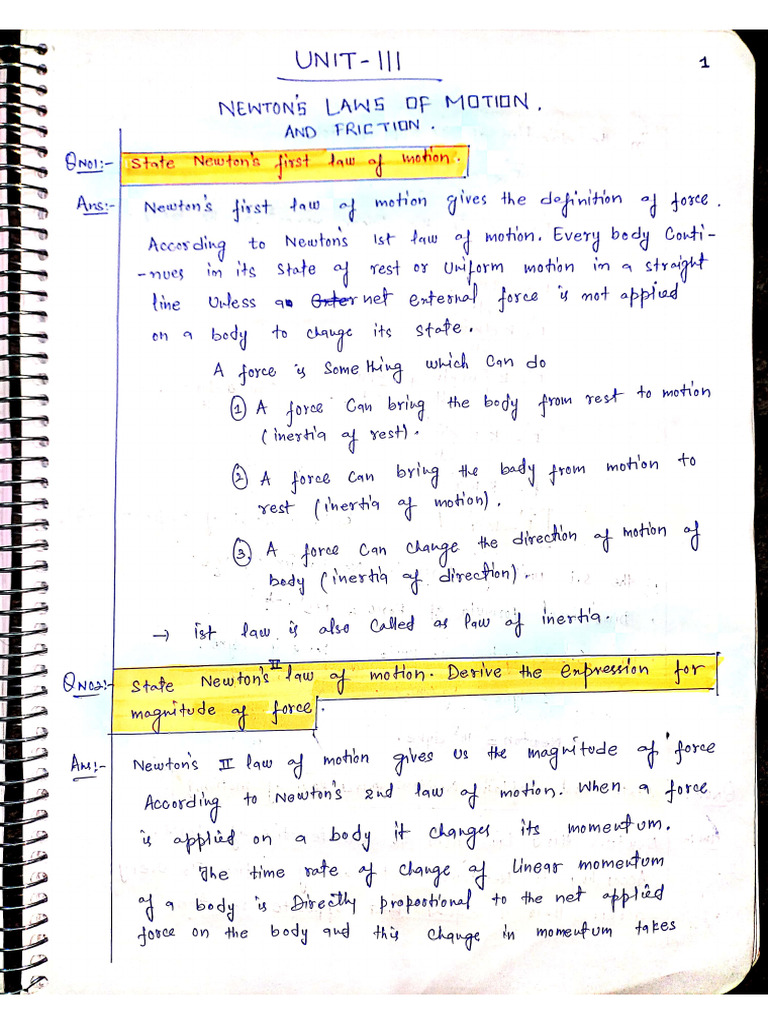 UNIT-III
1
NEWTON'S LAWS OF MOTION.
AND FRICTION.
QNo1:- State Newton's first law of motion.
Ans:- Newton's first law of motion gives the definition of force.
According to Newton's 1st law of motion. Every body Conti-
-nues in its state of rest or Uniform motion in a straight
line Unless a net external force is not applied
on a body to change its state.
A force is Some thing which Can do
① A force Can bring the body from rest to motion
(inertia of rest).
② A force Can bring the body from motion to
rest (inertia of motion).
③ A force Can change the direction of motion of
body (inertia of direction).
→ ist law is also Called as law of inertia.
QNo2:- State Newton's II law of motion. Derive the expression for
magnitude of force.
Ans:- Newton's II law of motion gives us the magnitude of force
According to Newton's 2nd law of motion. When a force
is applied on a body it changes its momentum.
The time rate of change of linear momentum
of a body is Directly propostional to the net applied
force on the body and this change in momentum takes